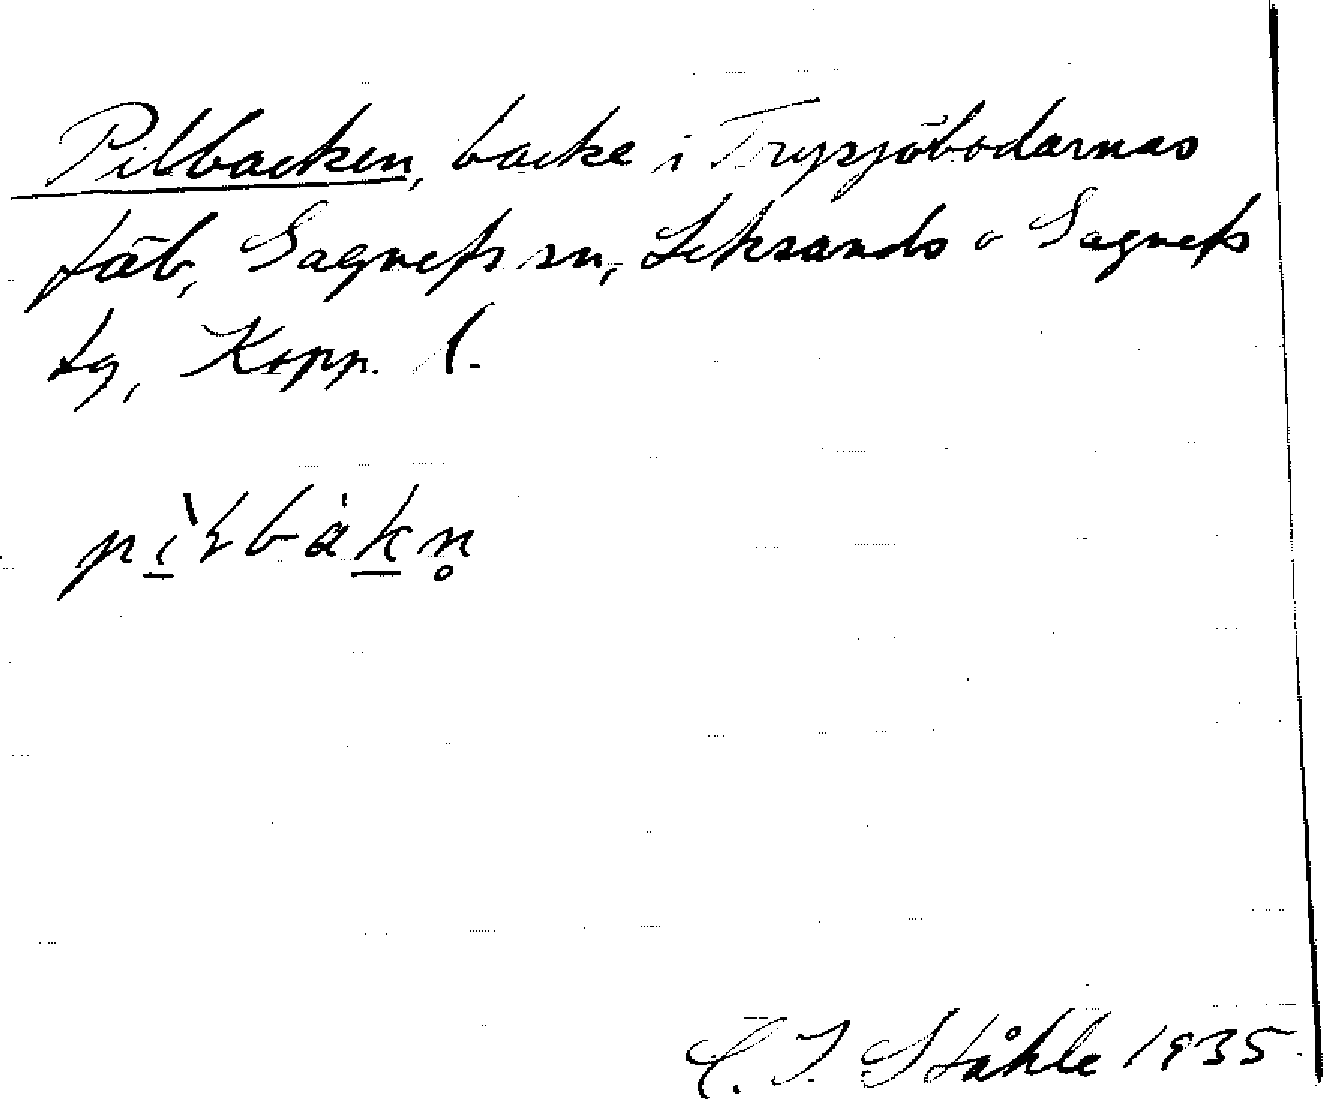 Pilbacken, backe i Trysjöbodarnas
fäb, Gagnefs sn, Leksands o Gagnefs
tg, Kopp. l.
pìłbák̲n̥
C. I. Ståhle 1935